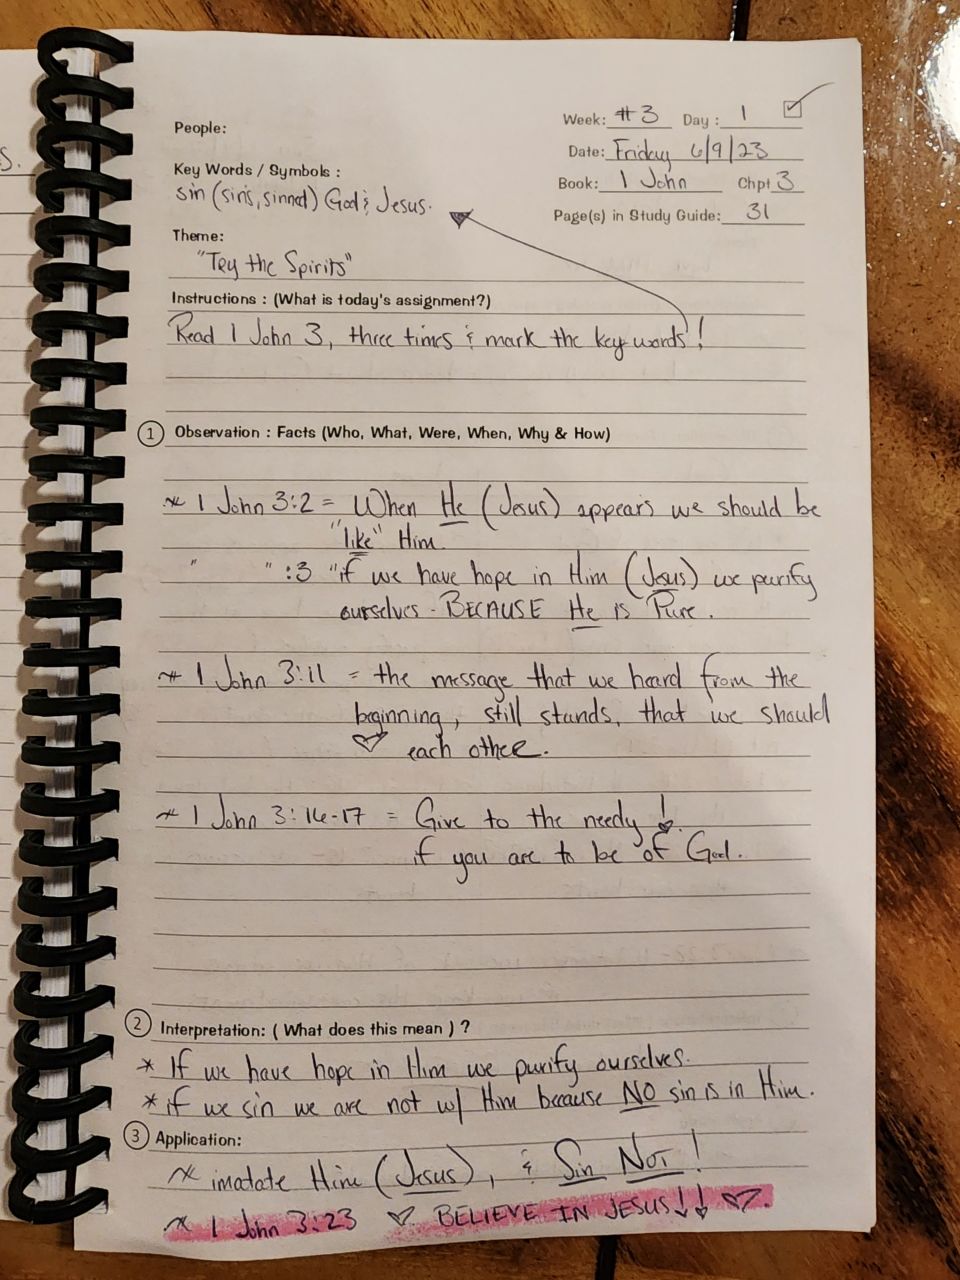 s.
People:
Week: #3 Day: 1
Date: Friday 6/9/23
Key Words / Symbols :
Book: 1 John Chpt 3
sin (sins, sinned) God & Jesus.
Page(s) in Study Guide: 31
Theme:
"Try the Spirits"
Instructions : (What is today's assignment?)
Read 1 John 3, three times & mark the key words!
1 Observation : Facts (Who, What, Were, When, Why & How)
* 1 John 3:2 = When He (Jesus) appears we should be
"like" Him.
" " :3 "if we have hope in Him (Jesus) we purify
ourselves - BECAUSE He is Pure.
* 1 John 3:11 = the message that we heard from the
beginning, still stands, that we should
♡ each other.
* 1 John 3:16-17 = Give to the needy!
if you are to be of God.
2 Interpretation: ( What does this mean ) ?
* If we have hope in Him we purify ourselves.
* if we sin we are not w/ Him because NO sin is in Him.
3 Application:
* imatate Him (Jesus), & Sin NOT!
* 1 John 3:23 ♡ BELIEVE IN JESUS!! ♡.